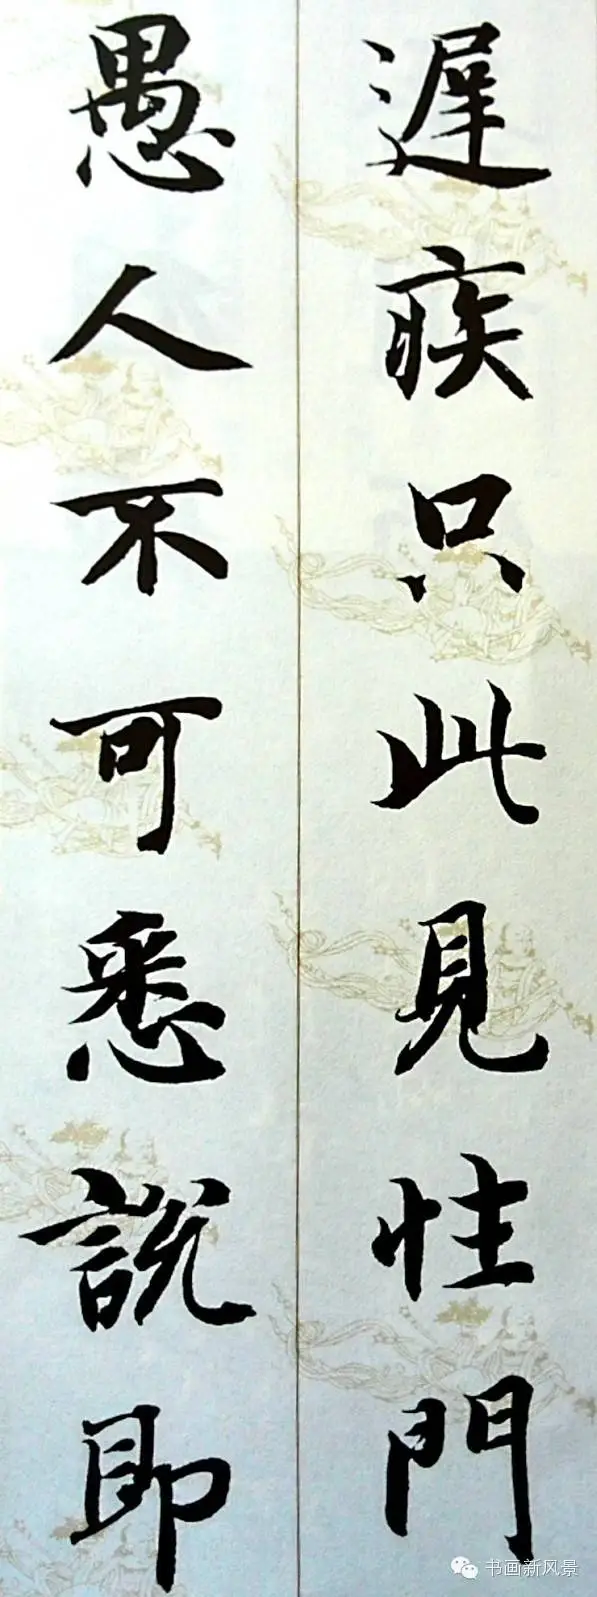 遲疾只此見性門
愚人不可悉說即
书画新风景